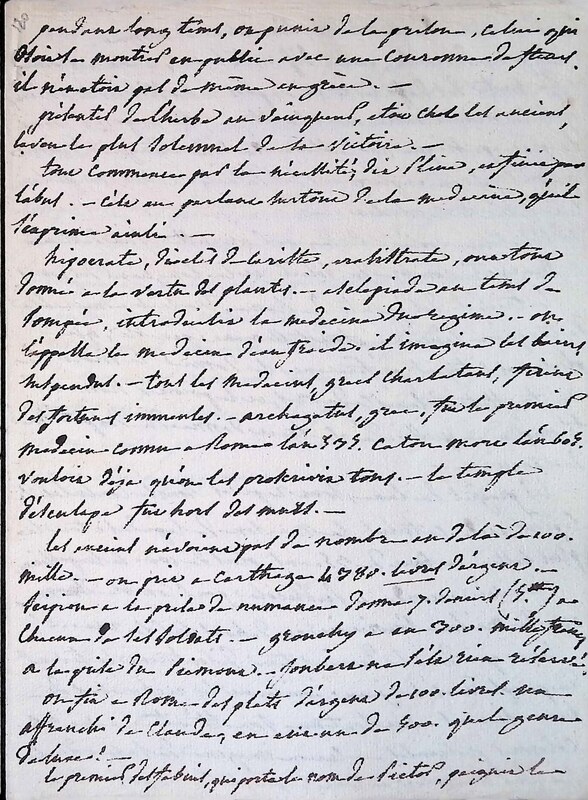 pendant long tems, on punit de la prison, celui qui
osoit se montrer en public avec une couronne de fleurs.
il n'en etoit pas de même en grèce.
présenter de l'herbe au vainqueur, etoit chez les anciens,
l'aveu le plus solemnel de la victoire. —
tout commence par la nécessité, dit Pline, et finit par
l'abus. — C'est en parlant surtout de la medecine, qu'il
s'exprime ainsi. —
hypocrate, dioclès de caritte, erasistrate, ont tous
donné a la vertu des plantes. — asclepiade au tems de
Pompée, introduisit la medecine du regime. — on
l'appella le medecin d'eau froide. il imagina les bains
suspendus. — tous les medecins, grecs charlatans, firent
des fortunes immenses. — archagatus, grec, fut le premier
medecin connu a Rome l'an 535. Caton mort l'an 605.
vouloit déja qu'on les proscrivit tous. — le temple
d'esculape fut hors des murs. —
les anciens n'avoient pas de nombre au delà de 100.
mille. — on prit a Carthage 4380. livres d'argent. —
Scipion a la prise de numance donna 7. deniers (5.tt) a
chacun de ses soldats. — grouchy a eu 300. mille francs
a la prise du Piemont. — Joubert ne s'est rien réservé.
on fit a Rome des plats d'argent de 100. livres. un
affranchi de Claude, en eut un de 500. quel genre
de luxe! —
le premier des fabius, qui porta le nom de Pictor, peignit le